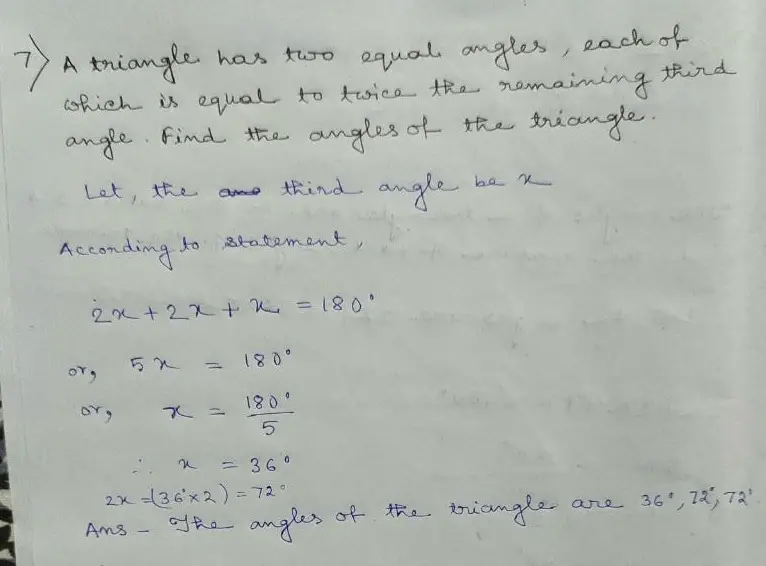 7) A triangle has two equal angles, each of
which is equal to twice the remaining third
angle. Find the angles of the triangle.
Let, the third angle be x
According to statement,
2x + 2x + x = 180°
or, 5x = 180°
or, x = 180°/5
∴ x = 36°
2x = (36°×2) = 72°
Ans - The angles of the triangle are 36°, 72°, 72°